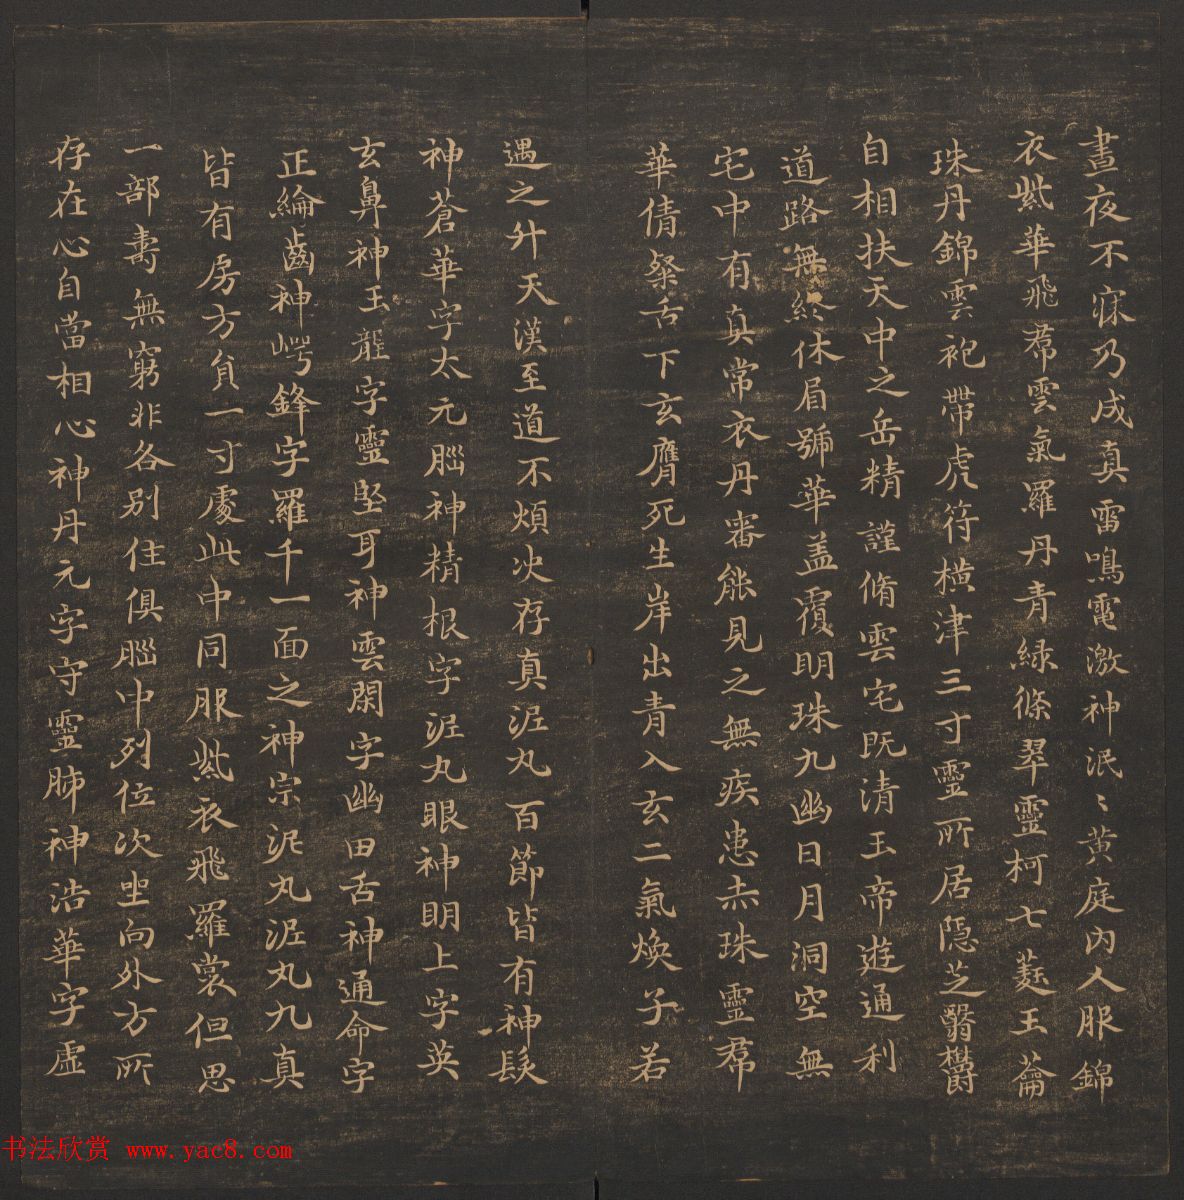 晝夜不寐乃成真雷鳴電激神泯〻黄庭内人服錦
衣紫華飛帬雲氣羅丹青緑條翠靈柯七蕤玉籥
珠丹錦雲袍帶虎符横津三寸靈所居隠芝翳欝
自相扶天中之岳精謹脩雲宅既清玉帝遊通利
道路無終休眉號華盖覆明珠九幽日月洞空無
宅中有真常衣丹審能見之無疾患赤珠靈帬
華倩粲舌下玄膺死生岸出青入玄二氣煥子若
遇之升天漢至道不煩决存真泥丸百節皆有神髮
神蒼華字太元腦神精根字泥丸眼神明上字英
玄鼻神玉壟字靈堅耳神雲閑字幽田舌神通命字
正綸齒神崿鋒字羅千一面之神宗泥丸泥丸九真
皆有房方負一寸處此中同服紫衣飛羅裳但思
一部壽無窮非各别住俱腦中列位次坐向外方所
存在心自當相心神丹元字守靈肺神浩華字虚
书法欣赏 www.yac8.com